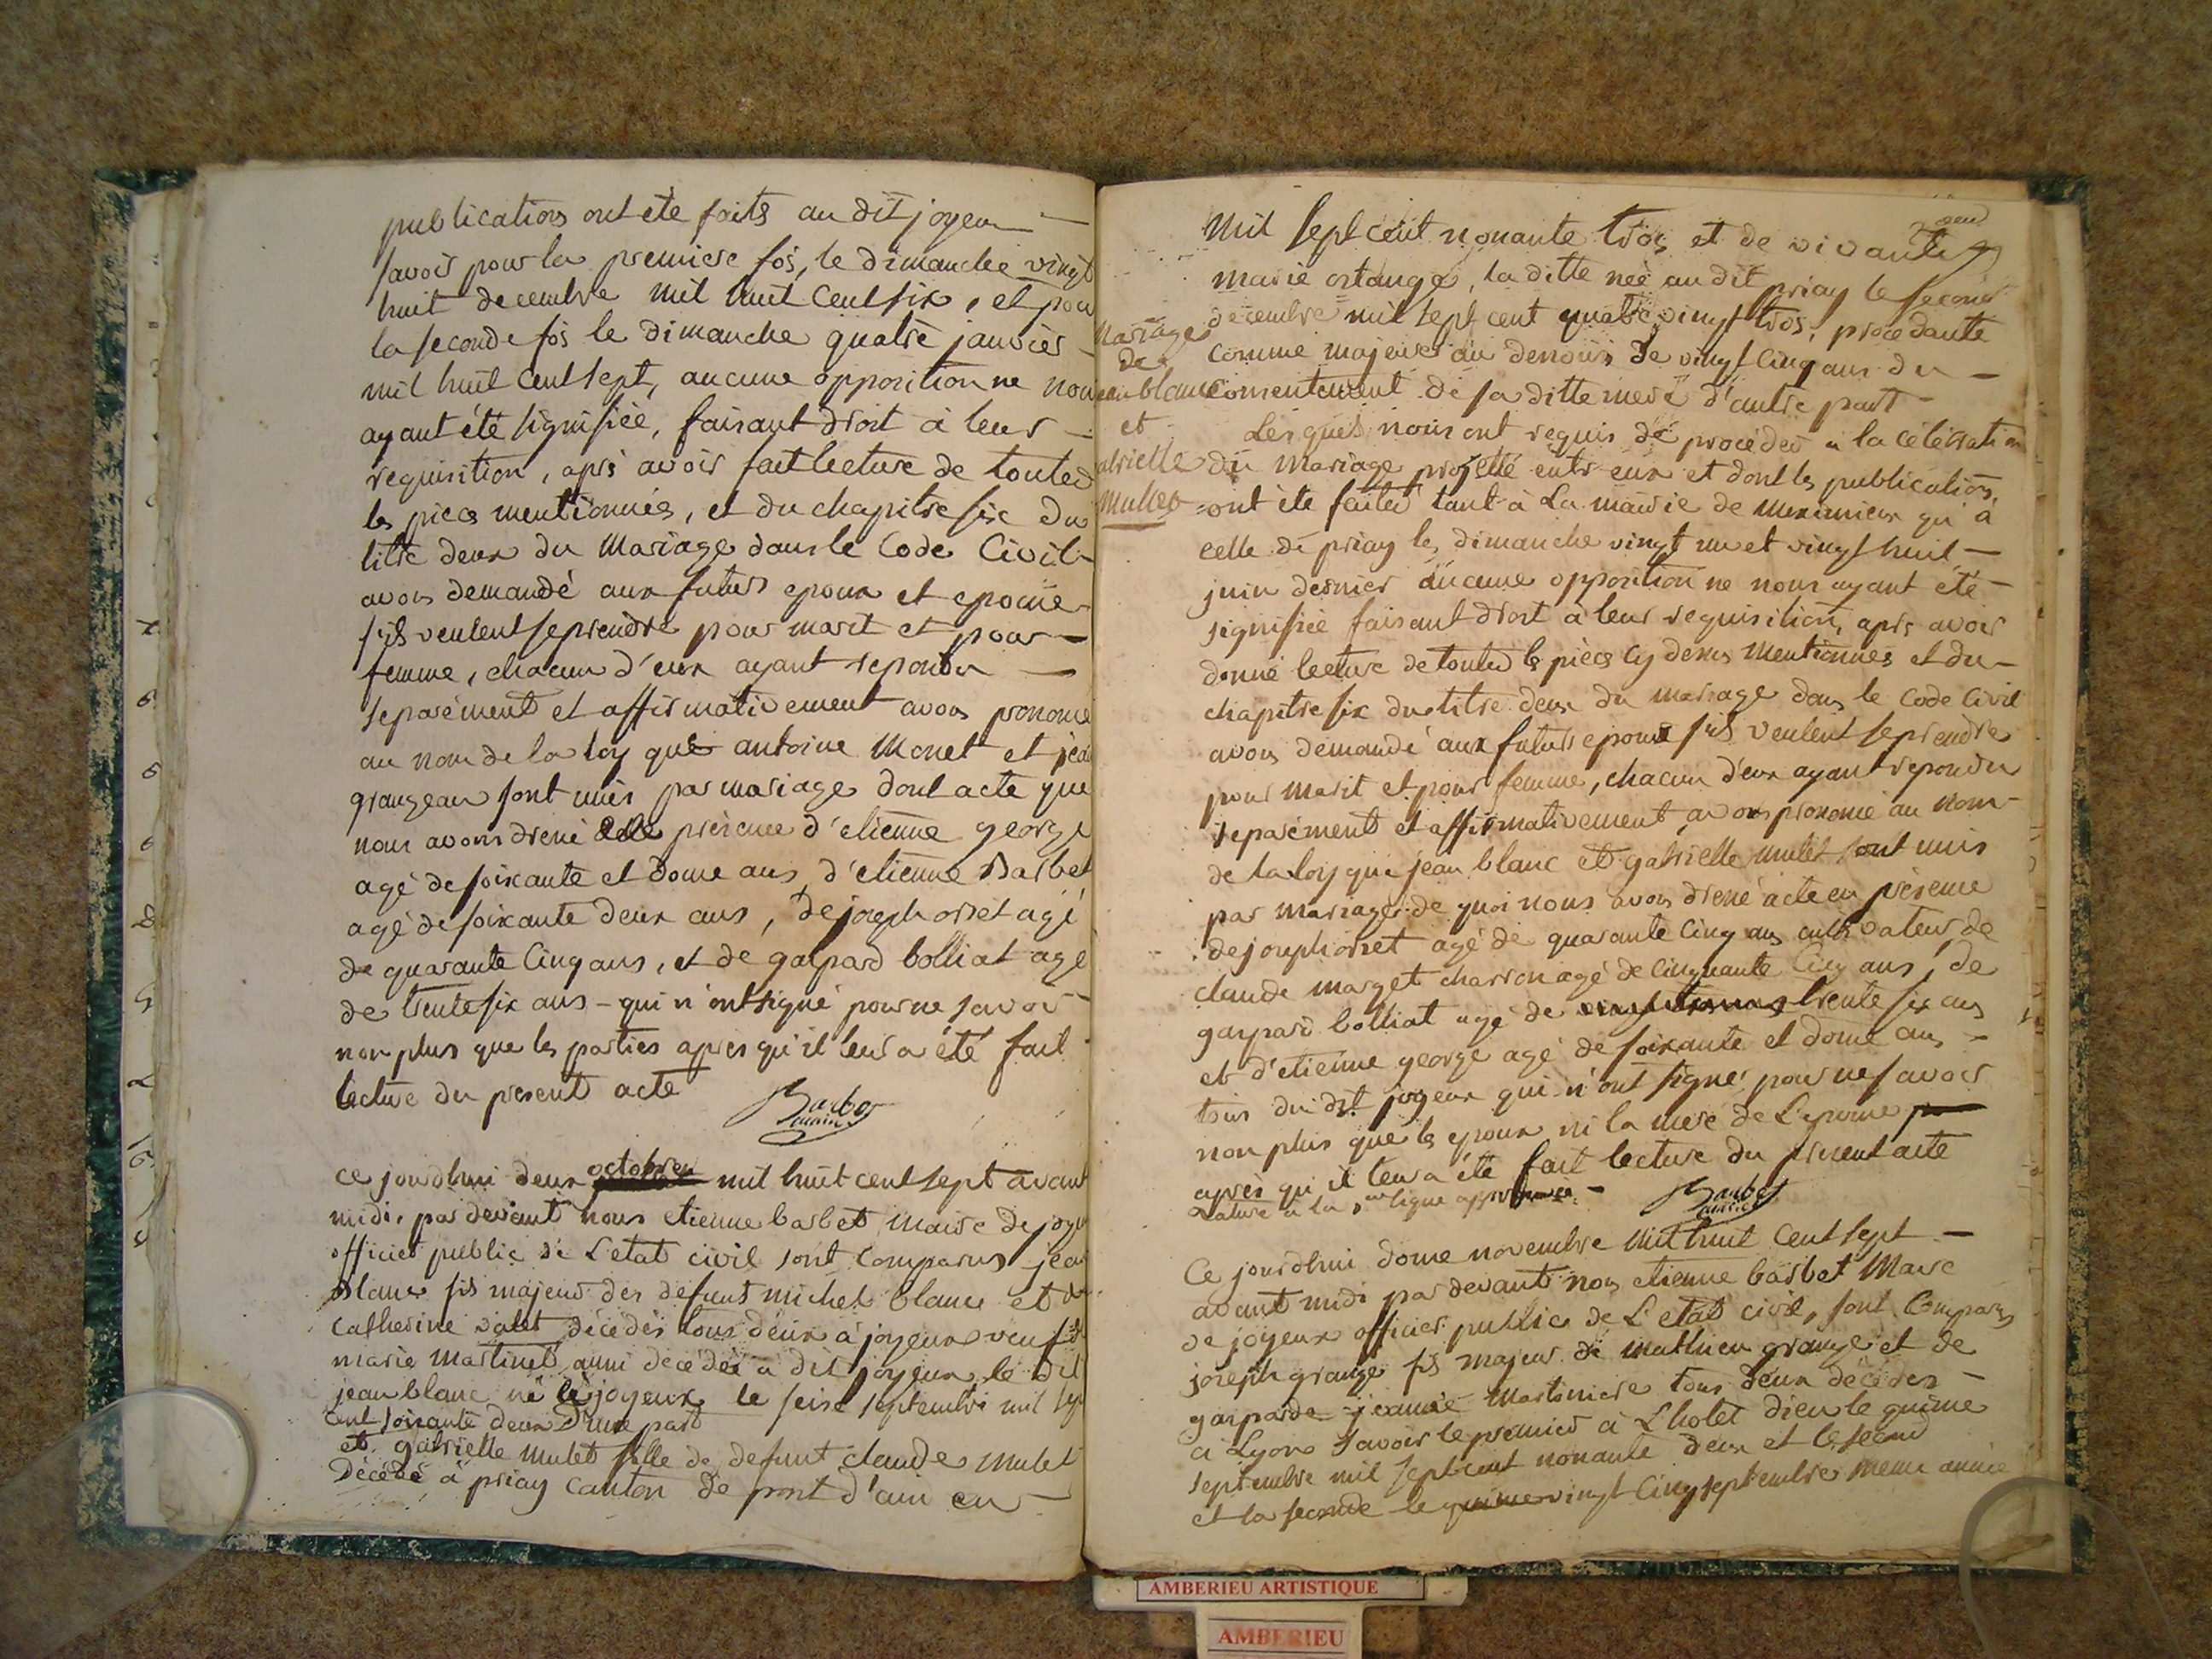 publications ont été faits au dit joyeux
savoir pour la premiere fois, le dimanche vingt
huit decembre mil huit cent six, et pour
la seconde fois le dimanche quatre janvier
mil huit cent sept, aucune opposition ne nous
ayant été signifiée, faisant droit à leur
requisition, aprés avoir fait lecture de toutes
les pieces mentionnées, et du chapitre six du
titre deux du Mariage dans le Code Civil
avons demandé aux futurs epoux et epouse
s'ils veulent se prendre pour marit et pour
femme, chacun d'eux ayant repondu
separément et affirmativement avons prononcé
au nom de la loy que antoine Monet et jean
grangeau sont unis par mariage dont acte que
nous avons dressé presence d'etienne george
agé de soixante et douze ans, d'etienne Barbet
agé de soixante deux ans, de joseph orset agé
de quarante Cinq ans, et de gaspard bolliat agé
de trente six ans - qui n'ont signé pour ne savoir
non plus que les parties apres qu'il leur a été fait
lecture du present acte
Barbet
maire
ce jourdhui deux octobre mil huit cent sept avant
midi, par devant nous etienne barbet maire de joyeux
officier public de L'etat civil sont comparus jean
Blanc fils majeur des defunt michel blanc et de
Catherine valet décédés tous deux à joyeux veuf de
marie Martinet aussi decedée a dit joyeux le dit
jean blanc né à joyeux le seize septembre mil sept
cent soixante deux d'une part
et gabrielle mulet fille de defunt claude mulet
Décédé à priay canton de pont d'ain en
Mariage
de
jean blanc
et
gabrielle
Mullet
mil sept cent nonante trois et de vivante
marie ostange, la ditte née au dit priay le second
decembre mil sept cent quatre vingt trois, procedante
comme majeure au dessous de vingt cinq ans du
consentement de sa ditte mere d'autre part
Lesquels nous ont requis de procéder à la célébration
du Mariage projetté entr'eux et dont les publications
ont été faites tant à La mairie de meximieux qu'à
celle de priay les dimanche vingt un et vingt huit
juin dernier aucune opposition ne nous ayant été
signifiée faisant droit à leur requisition, aprés avoir
donné lecture de toutes les pièces cy dessus mentionnés et du
chapitre six du titre deux du mariage dans le Code Civil
avons demandé aux futurs epoux s'ils veulent se prendre
pour marit et pour femme, chacun d'eux ayant repondu
separément et affirmativement avons prononcé au nom
de la loy que jean blanc et gabrielle mulet sont unis
par mariage de quoi nous avons dressé acte en présence
de joseph orset agé de quarante cinq ans cultivateur, de
claude marget charron agé de cinquante cinq ans, de
gaspard bolliat agé de trente six ans
et d'etienne george agé de soixante et douze ans
tous du dit joyeux qui n'ont signé pour ne savoir
non plus que les epoux ni la mere de L'epouse
après qu'il leur a été fait lecture du present acte
rature à la ligne approuvée.
Barbet
maire
Ce jourdhui douze novembre mil huit cent sept
avant midi par devant nous etienne barbet Maire
de joyeux officier public de L'etat civil, sont Comparus
joseph grange fils majeur de mathieu grange et de
gasparde jeanne martiniere tous deux décédés
à Lyon savoir le premier à Lhotel dieu le quinze
septembre mil sept cent nonante deux et le second
et la seconde le vingt cinq septembre meme année
AMBERIEU ARTISTIQUE
AMBERIEU